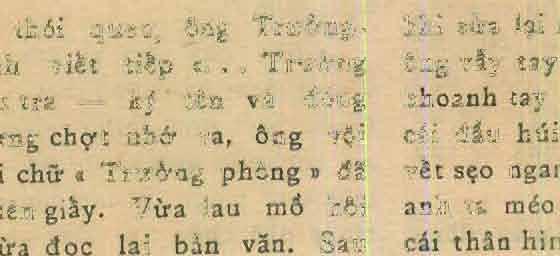 thói quen, ông Trưởng
viết tiếp « . . Trưởng
tra — ký tên và đóng
chợt nhớ ra, ông vội
chữ « Trưởng phòng » đã
trên giấy. Vừa lau mồ hôi
vừa đọc lại bản văn. Sau
khi sửa lại
ông vẫy tay
khoanh tay
cái đầu húi
vết sẹo ngan
anh ta méo
cái thân hìn